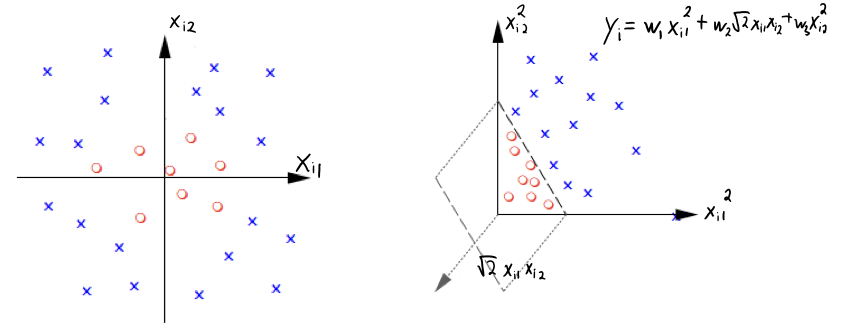 x_{i2}
x_{i1}
x_{i2}^2
y_i = w_1 x_{i1}^2 + w_2 √2 x_{i1} x_{i2} + w_3 x_{i2}^2
x_{i1}^2
√2 x_{i1} x_{i2}